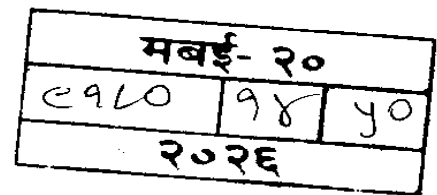 मबई- २०
९१८० १४ ५०
२०२६